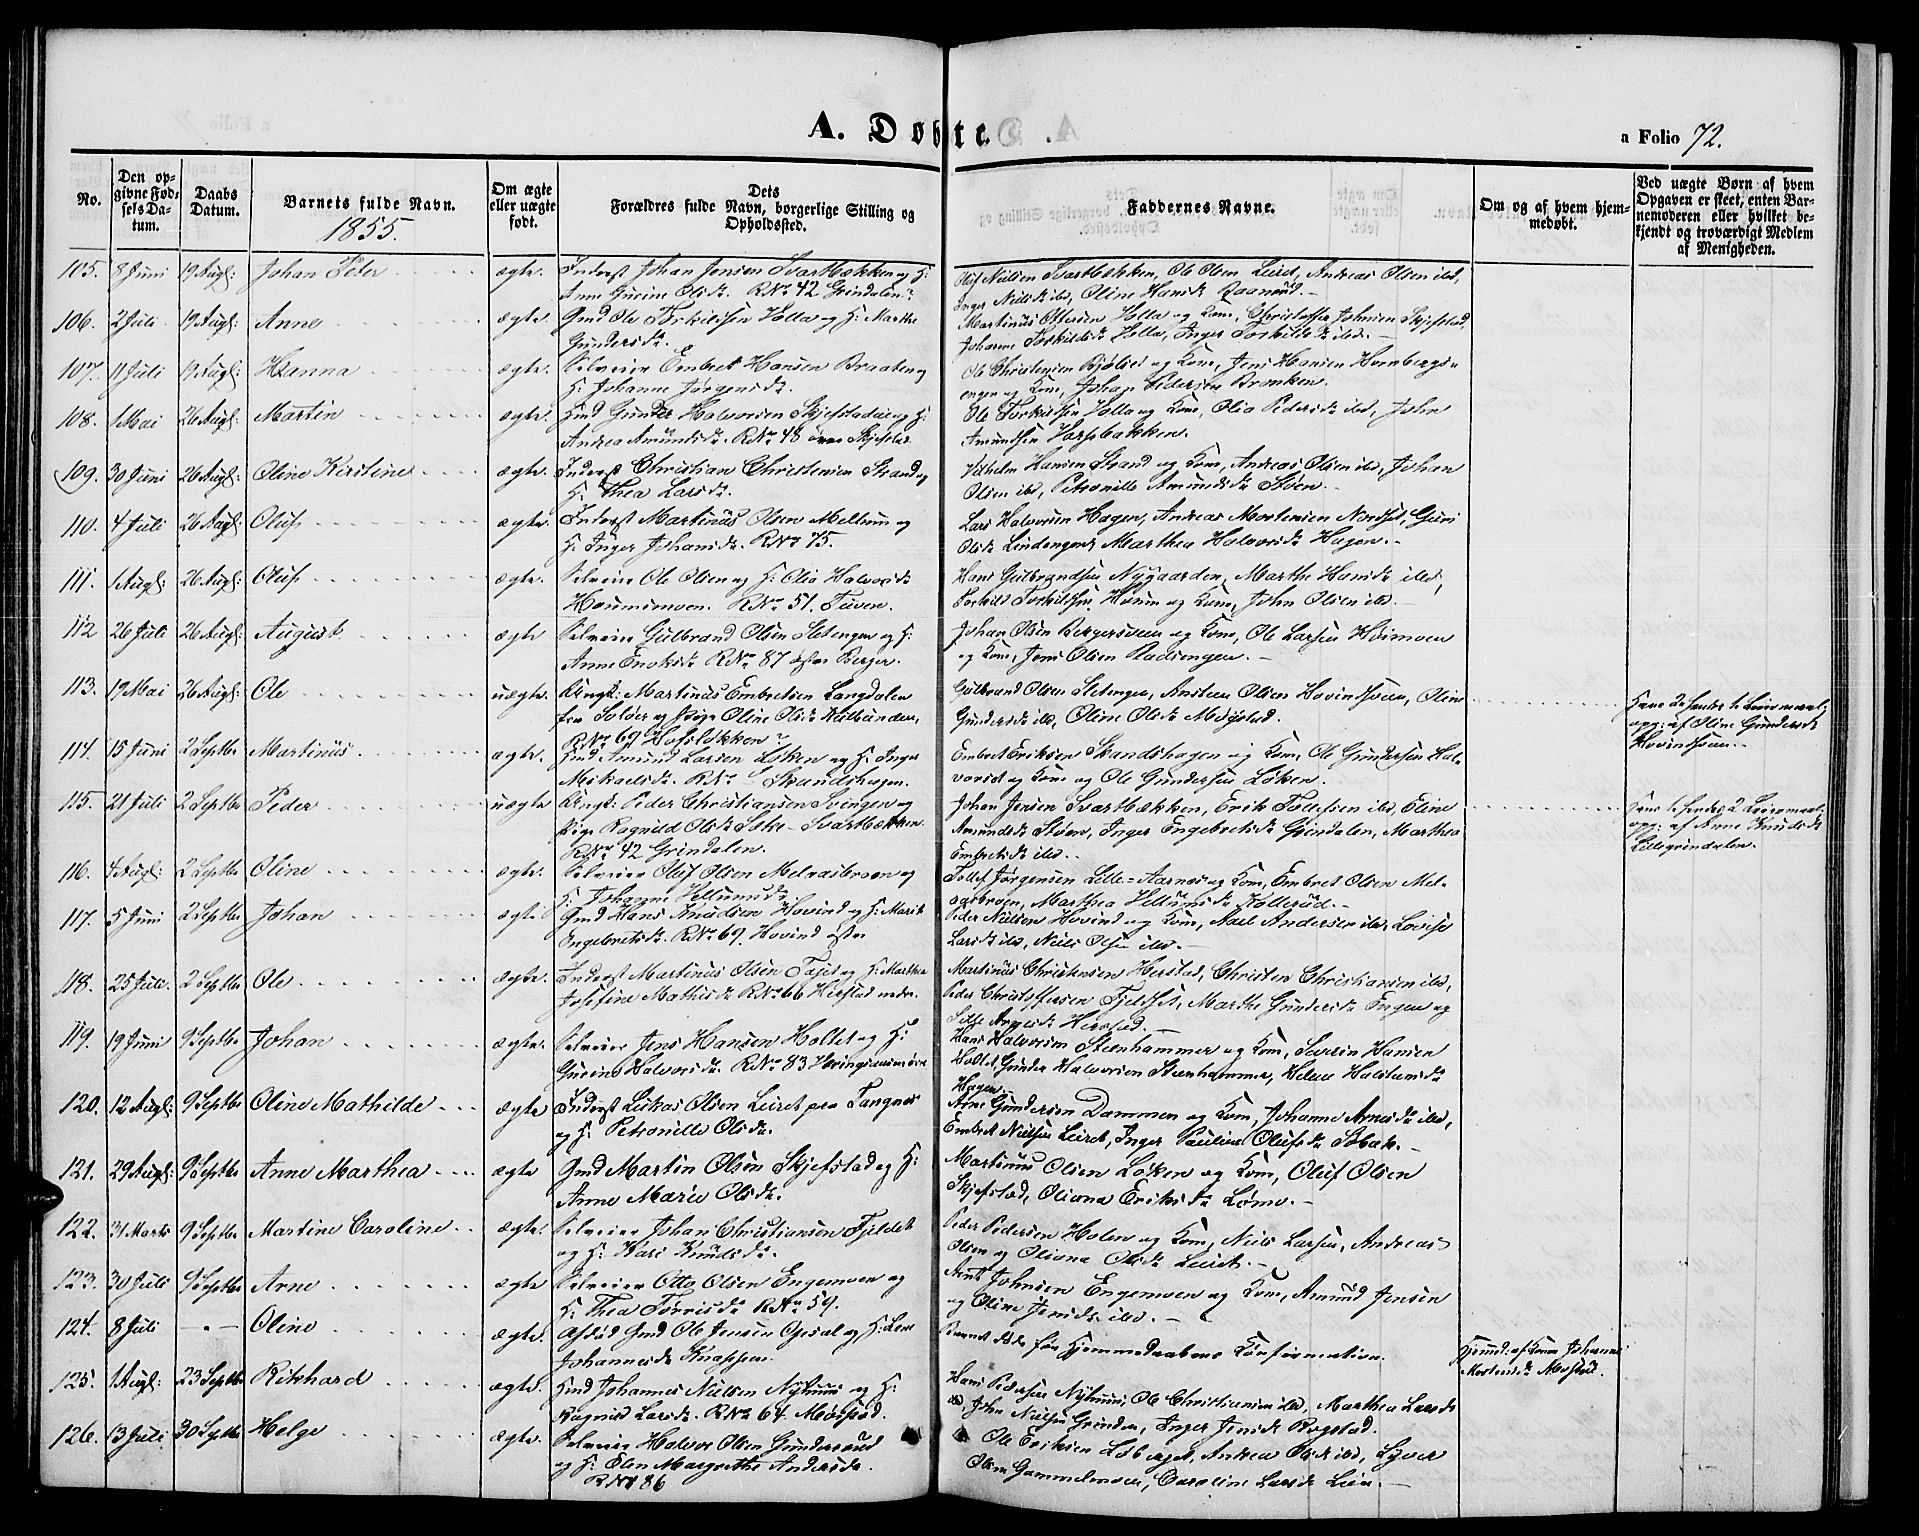 A. Døbte.
a Folio 72.
No.
Den opgivne Fødsels Datum.
Daabs Datum.
Barnets fulde Navn.
1855.
Om ægte eller uægte født.
Dets Forældres fulde Navn, borgerlige Stilling og Opholdssted.
Faddernes Navne.
Om og af hvem hjemmedøbt.
Ved uægte Børn af hvem Opgaven er skeet, enten Barnemoderen eller hvilket bekjendt og troværdigt Medlem af Menigheden.
105. 8 Juni 19 Augl: Johan Peter ægte. Inderst Johan Jensen Svartbækken og H:
Anne Gurine Olsdr. RNr 42 Grindalen.
Oluf Nielsen Svartbækken, Ole Olsen Leiret, Andreas Olsen ibd,
Inger Nielsdr ibd, Oline Hansdr
106. 2 Juli 19 Augl: Anne ægte. Gmd Ole Torkilsen Holla og H: Marthe
Gundersdr.
Martinus Ottersen Holla og Kone, Christoffer Johnsen Skjefstad,
Johanne Torkildsdr Holla, Inger Torkildsdr ibd.
107. 11 Juli 19 Augl: Hanna ægte. Selveier Embret Hansen Braaten og
H: Johanne Jørgensdr.
Ole Christensen Bjølset og Kone, Jens Hansen Hornbergs-
engen og Kone, Johan Pedersen Bronken.
108. 1 Mai 26 Augl: Martin ægte. Hmd Gunder Halvorsen Skjefstad og H:
Andrea Amundsdr. RNr 48 Skjefstad
Ole Torkilsen Holla og Kone, Olia Pedersdr ibd, John
Amundsen Harpbakken.
109. 30 Juni 26 Augl: Oline Kirstine ægte. Inderst Christian Christensen Strand og
H: Thea Larsdr.
Vilhelm Hansen Strand og Kone, Andreas Olsen ibd, Johan
Olsen ibd, Petronille Amundsdr Støen.
110. 4 Juli 26 Augl: Oluf ægte. Inderst Martinus Olsen Meltum og
H: Inger Johansdr. RNr 75.
Lars Halvorsen Hagen, Andreas Mortensen Nordset, Guri
Olsdr Lindengen, Marthea Halvorsdr Hagen.
111. 1 Augl: 26 Augl: Oluf ægte. Selveier Ole Olsen og H: Olia Halvorsdr
Houmsmoen. RNr 51. Tuven.
Hans Gulbrandsen Nygaarden, Marthe Hansdr ibd,
Torkild Torkildsen Houm og Kone, John Olsen ibd.
112 26 Juli 26 Augl: August ægte Selveier Gulbrand Olsen Sletengen og H:
Anne Eriksdr RNr 87 østre Berger.
Johan Olsen Bergersveen og Kone, Ole Larsen Hoimoen
og Kone, Jens Olsen Rudsengen.
113. 19 Mai 26 Augl: Ole uægte. Ungk: Martinus Embretsen Langdalen
fra Soløer og Pige Oline Olsdr Kulbunden,
RNr 69 Hofsløkken
Gulbrand Olsen Sletengen, Amsteen Olsen Hovindsveen, Oline
Gundersdr ibd, Oline Olsdr Møystad.
opg: af Oline Gundersdr
Hovindsveen.
114. 15 Juni 2 Septbr Martinus ægte. Gmd Amund Larsen Løken og H: Inger
Mikaelsdr. RNr Skandshagen.
Embret Eriksen Skandshagen og Kone, Ole Gundersen Hal-
vorset og Kone og Ole Gundersen Løken.
115. 21 Juli 2 Septbr Peder uægte Ungk: Peder Christiansen Svingen og
Pige Ragnild Olsdr Svartbækken.
RNr 42 Grindalen.
Johan Jensen Svartbækken, Erik Tollefsen ibd, Eline
Amundsdr Støen, Inger Engebretsdr Grindalen, Marthea
Embretsdr ibd.
opg: af Anne Knudsdr
Lillegrindalen.
116. 4 Augl: 2 Septbr Oline ægte. Selveier Oluf Olsen Melaasbroen og
H: Johanne
Tollef Jørgensen Lille-Aarnes og Kone, Embret Olsen Mel-
aasbroen, Marthea Kollerud.
117. 5 Juni 2 Septbr Johan ægte Gmd Hans Knudsen Hovind og H: Marit
Engebretsdr. RNr 69. Hovind østre
Peder Nielsen Hovind og Kone, Axel Andersen ibd, Lovise
Larsdr ibd, Niels Olsen ibd.
118. 25 Juli. 2 Septbr Ole ægte. Inderst Martinus Olsen og H: Marthea
Josefine Mathisdr RNr 66 Herstad nedre.
Martinus Christensen Herstad, Christen Christiansen ibd,
Peder Christoffersen Fjeldset, Marthe Gundersdr Engen og
Herstad.
119. 19 Juni 9 Septbr Johan ægte. Selveier Jens Hansen Holtet og H:
Gurine Halvorsdr. RNr 83
Hans Halvorsen Steenhammer og Kone, Severin Hansen
Holtet, Gunder Halvorsen Steenhammer, Helene Halstensdr
Hagen.
120. 12 Augl: 9 Septbr Oline Mathilde ægte Inderst Lukas Olsen Leiret
og H: Petronille Olsdr.
Arne Gundersen Dammen og Kone, Johanne Arnesdr ibd,
Embret Nielsen Leiret, Inger Pauline Olufsdr
121. 29 Augl: 9 Septbr Anne Marthea ægte Gmd Martin Olsen Skjefstad og H:
Anne Marie Olsdr.
Martinus Olsen Løken og Kone, Oluf Olsen
Skjefstad, Oliana Eriksdr
122. 31 Marts 9 Septbr Martine Caroline ægte. Selveier Johan Christiansen Fjeldet
og H: Kari Knudsdr.
Peder Pedersen Holen og Kone, Niels Larsen, Andreas
Olsen og Oliana Olsdr Leiret.
123. 30 Juli 9 Septbr Arne ægte Selveier Otto Olsen Engemoen og
H: Thea Torrisdr RNr 59.
Arnt Johnsen Engemoen og Kone, Amund Jensen
og Oline Jensdr ibd.
124. 8 Juli Oline ægte. Afdød Gmd Ole Jensen Opsal og H: Lene
Johannesdr Knappen.
Barnet døde før Hjemmedaabens Confirmation.
Hjemmd: af Kone Johanne
Mortensdr
125. 1 Augl: 23 Septbr Rikhard ægte. Hmd Johannes Nielsen Nyhuus og H:
Ragnild Larsdr. RNr 64. Mørstad.
Hans Pedersen Nyhuus, Ole Christiansen ibd, Marthea Larsdr
ibd, John Nielsen Grinden, Inger Jensdr Rogstad.
126. 13 Juli 30 Septbr Helge ægte. Selveier Halvor Olsen Gundersrud
og H: Elen Margrethe Andersdr.
RNr 86
Ole Eriksen Loberget, Andrea Olsdr ibd, Syver
Olsen Gammelmoen, Caroline Larsdr Lien.